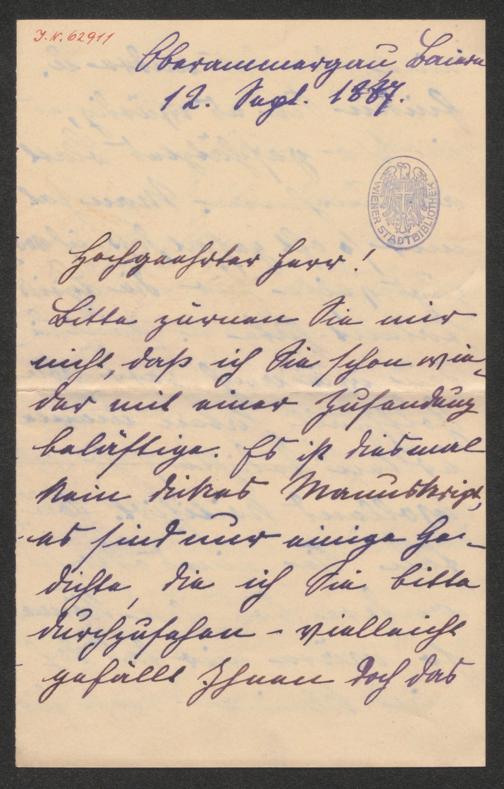 J.N. 62911
Oberammergau Baiern
12. Sept. 1887.
WIENER STADTBIBLIOTHEK
Hochgeehrter Herr!
Bitte zürnen Sie mir
nicht, daß ich Sie schon wie-
der mit einer Zusendung
belästige. Es ist diesmal
kein dickes Manuskript,
es sind nur einige Ge-
dichte, die ich Sie bitte
durchzusehen – vielleicht
gefällt Ihnen doch das